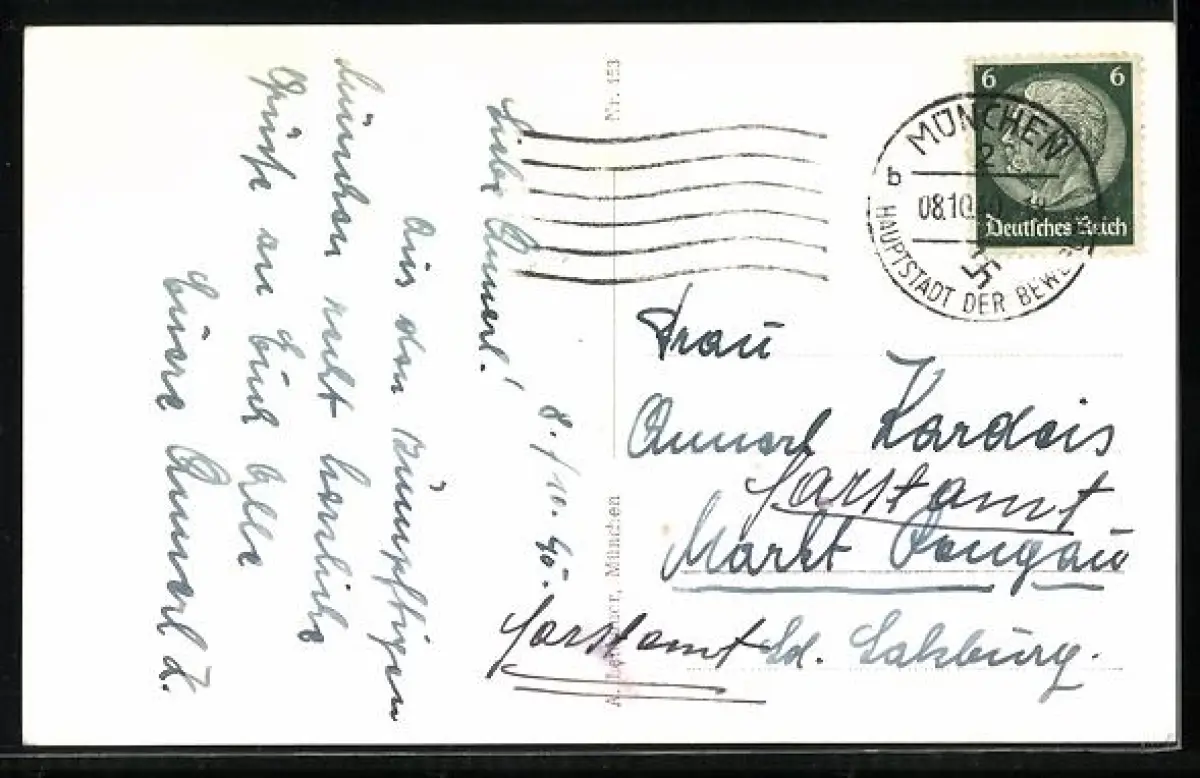 Liebe Annerl!
8./10. 40.
Aus dem zünftigen
München recht herzliche
Grüße an Euch alle
Eure Annerl Z.
Nr. 153
München
6 6
Deutsches Reich
MÜNCHEN
2
b
08.10.40
HAUPTSTADT DER BEWE
Frau
Annerl Kardeis
Forstamt
Markt Pongau
Forstamt Ld. Salzburg.